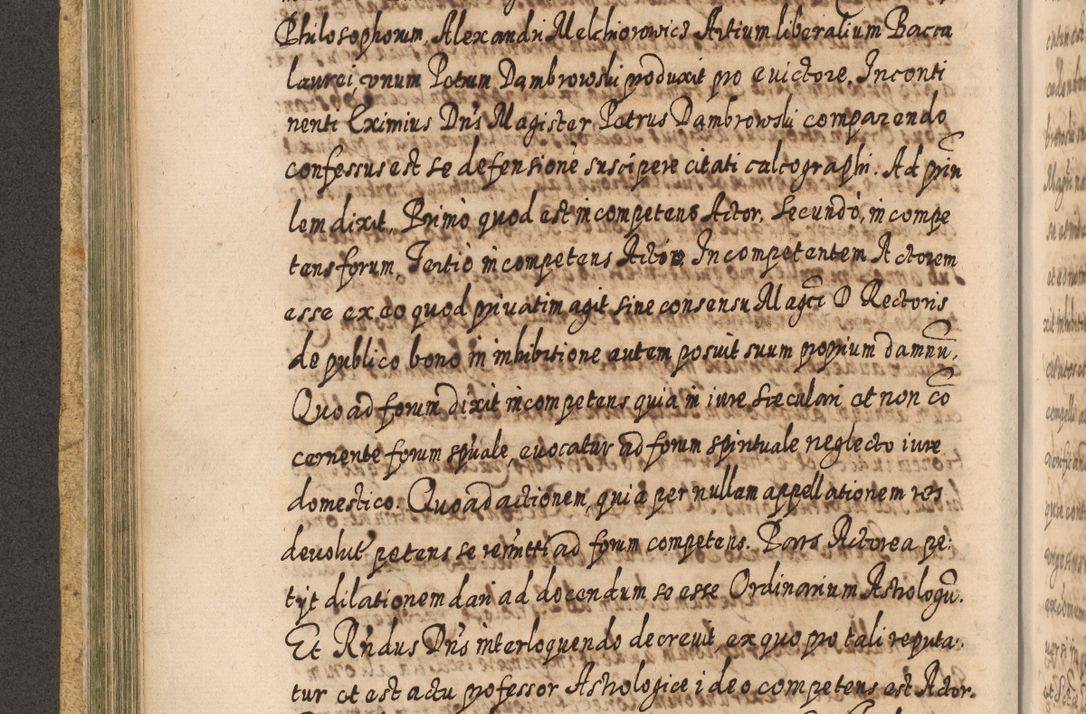 Philosophorum, Alexandri Melchiorowicz Artium liberalium Bacca
laurei, vnum Petrum Dambrowski produxit pro euictore. Inconti
nenti Eximius Dn̄s Magister Petrus Dąmbrowski comparendo
confessus est se defensionē suscipere citati calcographi. Ad prin
lem dixit, Primò quod est incompetens Actor, Secundò, incompe
tens forum, Tertiò incompetens Actio, Incompetentem Actorem
esse ex eo quod priuatim agit sine consensu Magci D Rectoris
de publico bono in inhibitione autem posuit suum proprium damnū,
Quo ad forum dixit incompetens quia in iure sæculari et non cō
cernente forum spūale, euocatur ad forum spirituale neglecto iure
domestico. Quo ad actionem, quia per nullam appellationem res
deuolut petens se remitti ad forum competens. Pars Actorea pe:
tijt dilationem dari ad docendum se esse Ordinarium Astrologū.
Et Rn̄dus Dn̄s interloquendo decreuit, ex quo pro tali reputa:
tur et est actu professor Astrologiæ ideo competens est Actor.